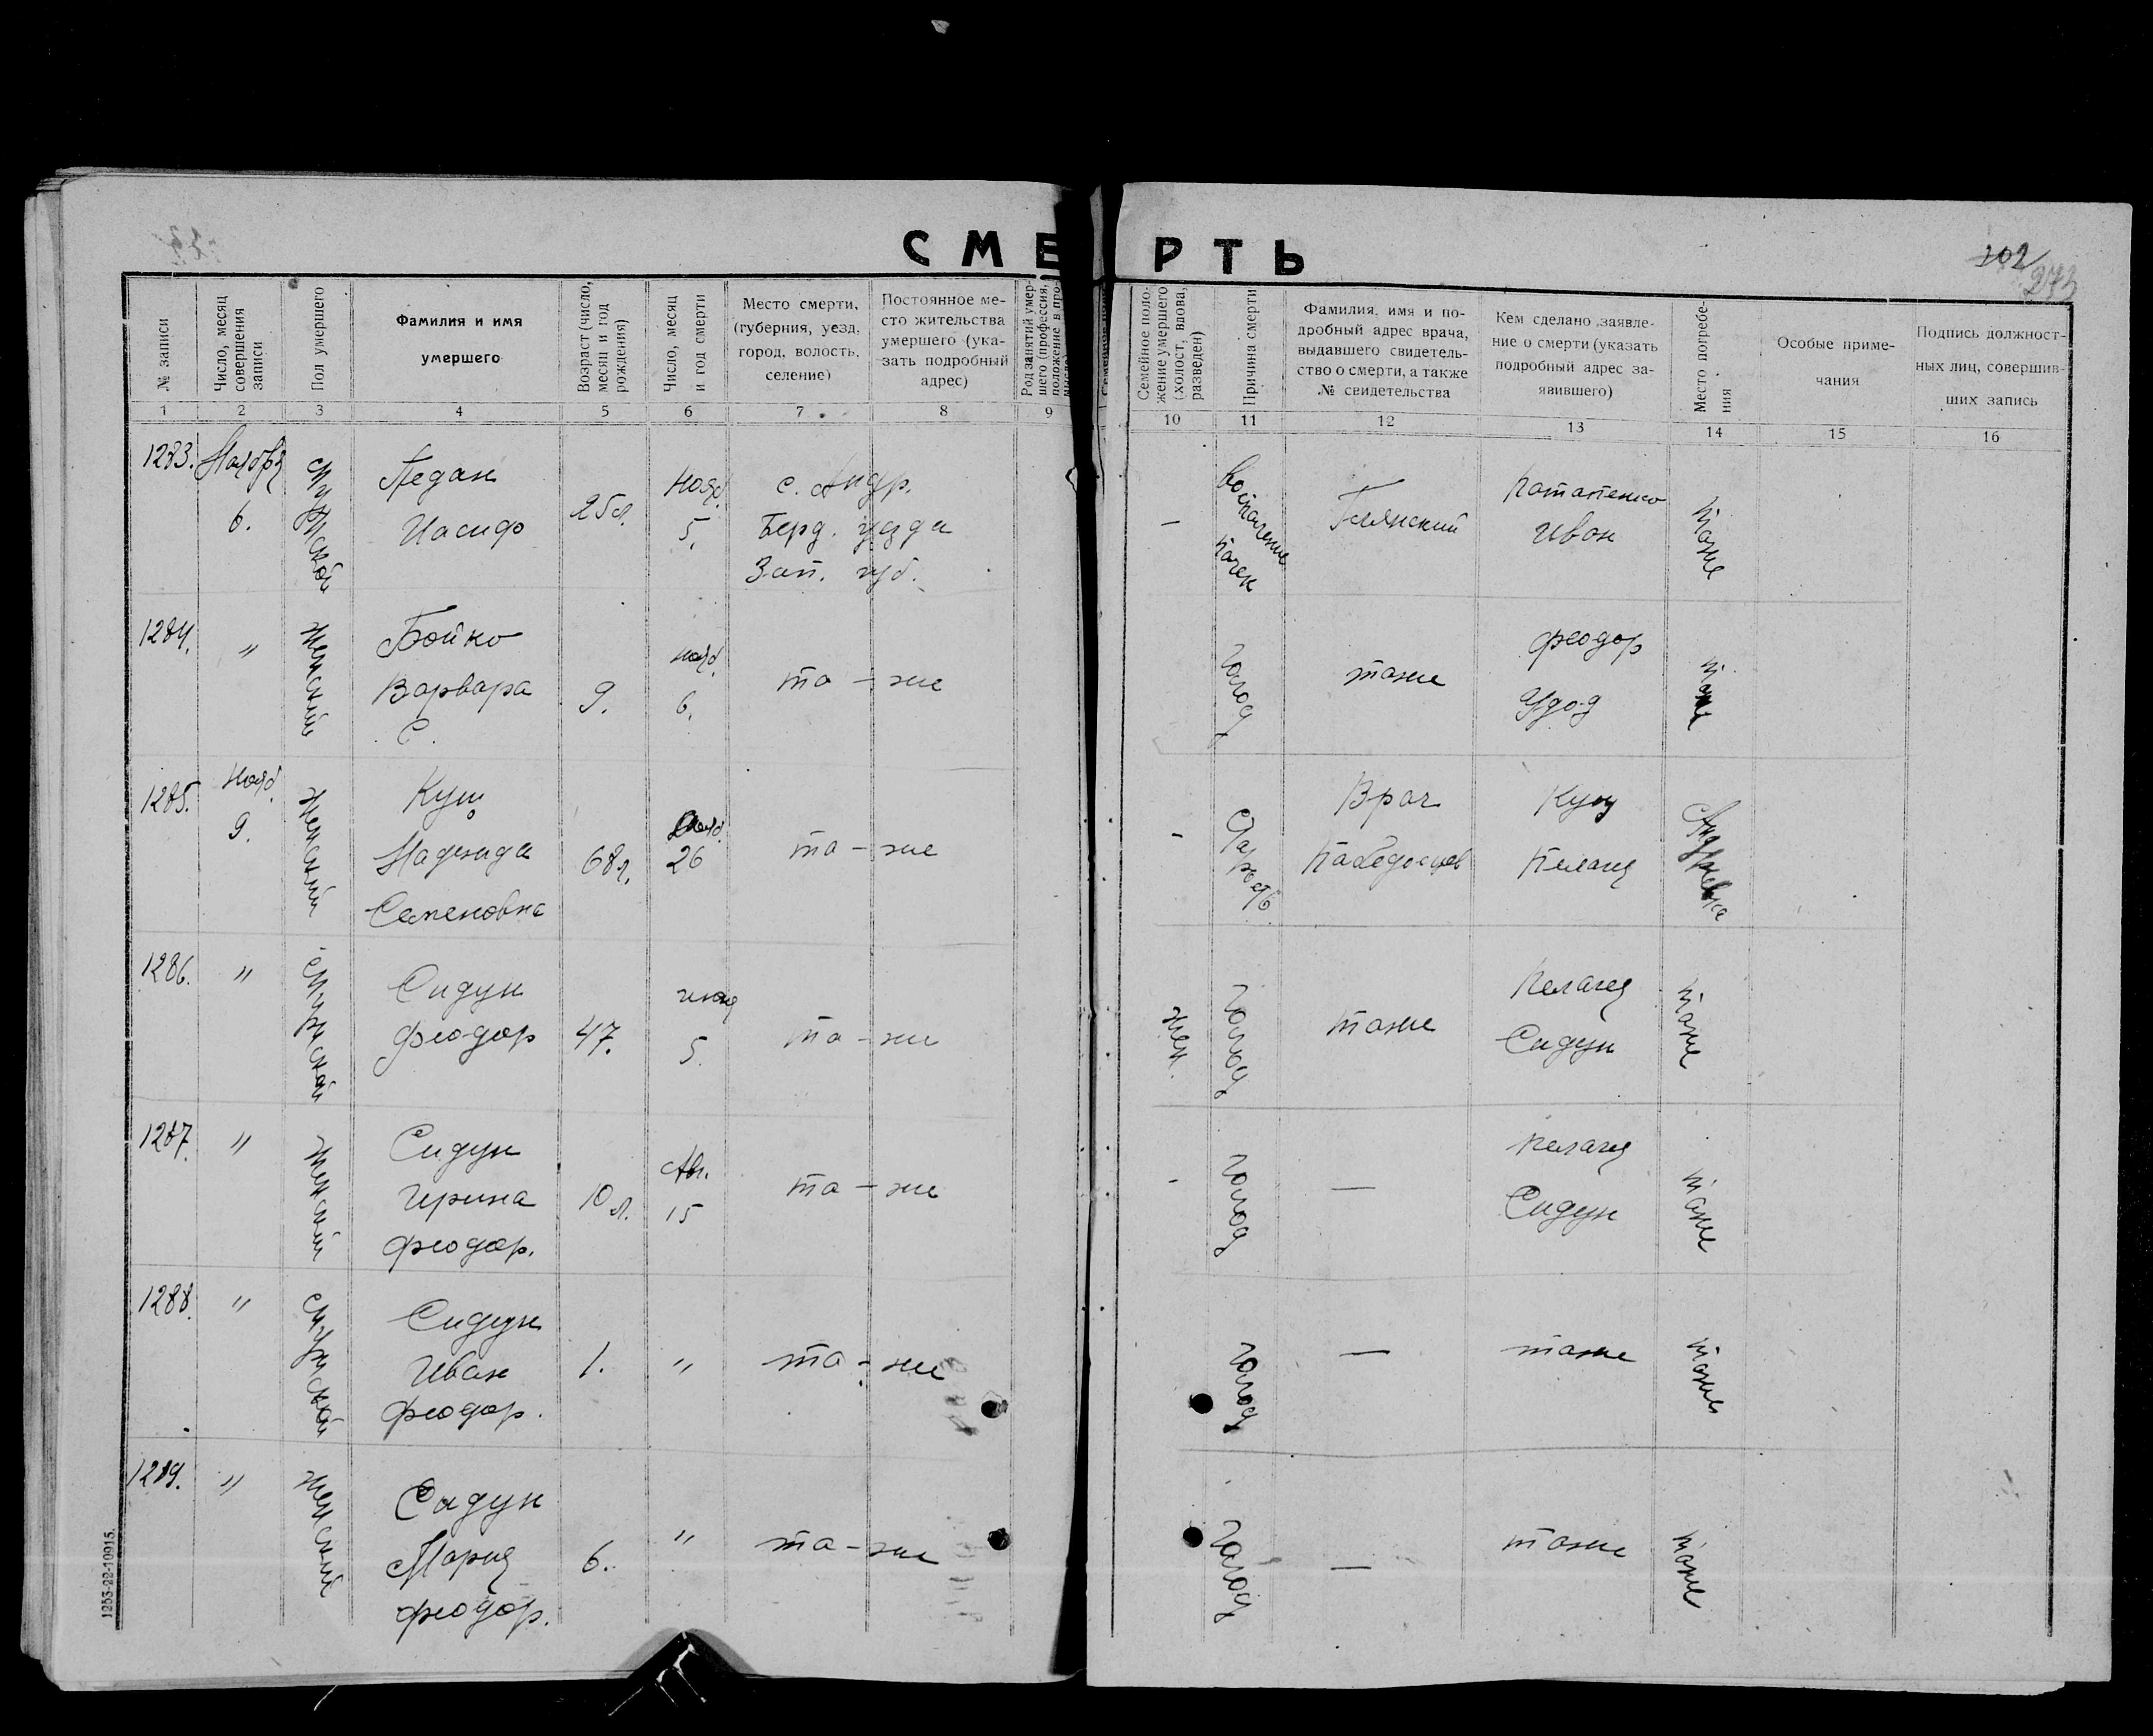 СМЕРТЬ
202
273
№ записи
Число, месяц совершения записи
Пол умершего
Фамилия и имя умершего
Возраст (число, месяц и год рождения)
Число, месяц и год смерти
Место смерти, (губерния, уезд, город, волость, селение)
Постоянное место жительства умершего (указать подробный адрес)
Род занятий умершего (профессия, положение в про-
Семейное положение умершего (холост, вдова, разведен)
Причина смерти
Фамилия, имя и подробный адрес врача, выдавшего свидетельство о смерти, а также № свидетельства
Кем сделано заявление о смерти (указать подробный адрес заявившего)
Место погребения
Особые примечания
Подпись должностных лиц, совершивших запись
1 2 3 4 5 6 7 8 9 10 11 12 13 14 15 16
1283. Ноября 6. Мужской Педан Иасиф 25 л. Нояб. 5. с. Андр. Берд. уезда Зап. губ. – Воспаление почек Глянский Потапенко Иван тоже
1284. " Женский Бойко Варвара С. 9. нояб. 6. то – же голод тоже Феодор Удод тоже
1285. Нояб. 9. Женский Кущ Надежда Семеновна 68 л. 26 то – же - Старость Врач Победосцев Кущ Андреевка
1286. " Мужской Сидун Феодор 47. 5. то – же жен. голод тоже Пелагея Сидун тоже
1287. " Женский Сидун Ирина Феодор. 10 л. Авг. 15 то – же - голод — Пелагея Сидун тоже
1288. " Мужской Сидун Иван Феодор. 1. " то – же голод — тоже тоже
1289. " Женский Сидун Мария Феодор. 6. " то – же голод — тоже тоже
1253-22-10915.